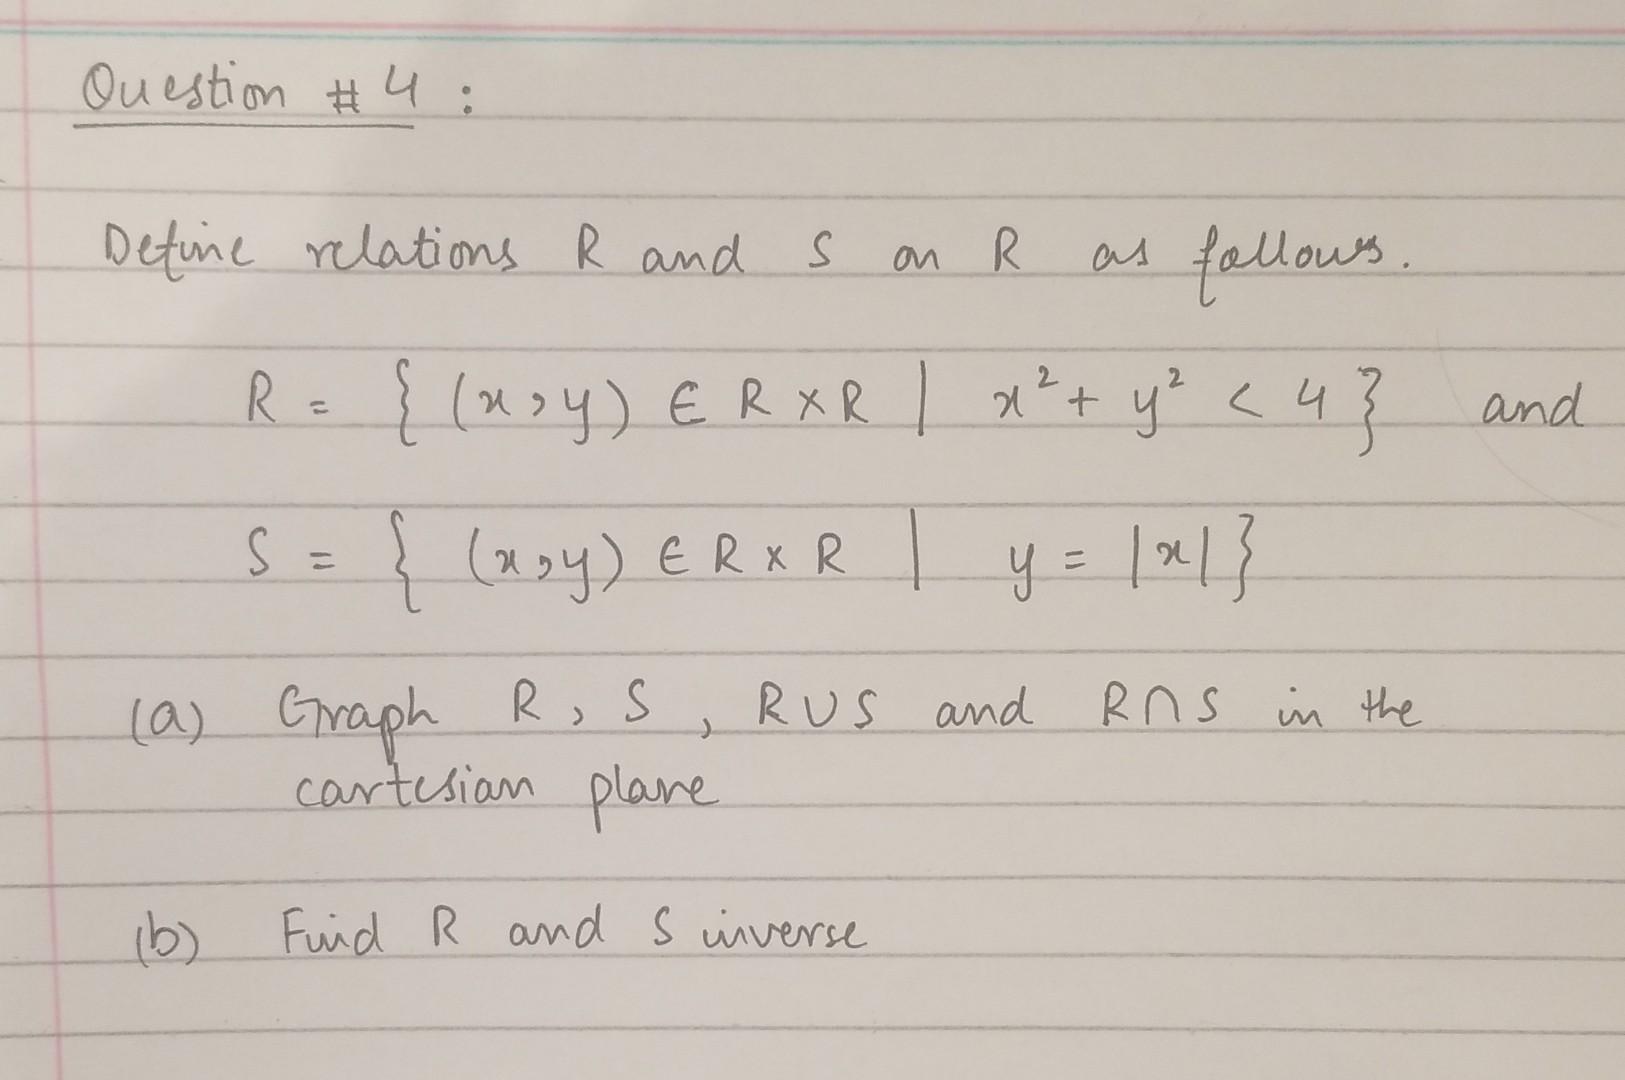 Question # 4 :
Define relations R and S on R as follows.
R = { (x,y) ∈ R × R | x² + y² < 4 } and
S = { (x,y) ∈ R × R | y = |x| }
(a) Graph R, S, R∪S and R∩S in the
cartesian plane
(b) Find R and S inverse